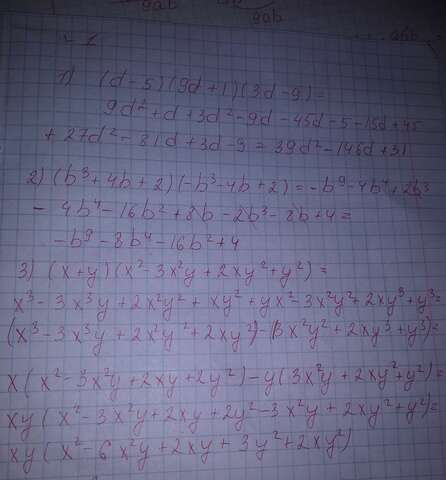 9ab
9ab
1) (d-5)(9d+1)(3d-9)=
9d²+d+3d²-9d-45d-5-15d+45
+27d²-81d+3d-9=39d²-146d+31
2) (b³+4b+2)(-b³-4b+2)=-b⁹-4b⁴+2b³
-4b⁴-16b²+8b-2b³-8b+4=
-b⁹-8b⁴-16b²+4
3) (x+y)(x²-3x²y+2xy²+y²)=
x³-3x³y+2x²y²+xy²+yx²-3x²y²+2xy³+y³=
(x³-3x³y+2x²y²+2xy²)-(3x²y²+2xy³+y³)=
x(x²-3x²y+2xy+2y²)-y(3x²y+2xy²+y²)=
xy(x²-3x²y+2xy+2y²-3x²y+2xy²+y²)=
xy(x²-6x²y+2xy+3y²+2xy²)